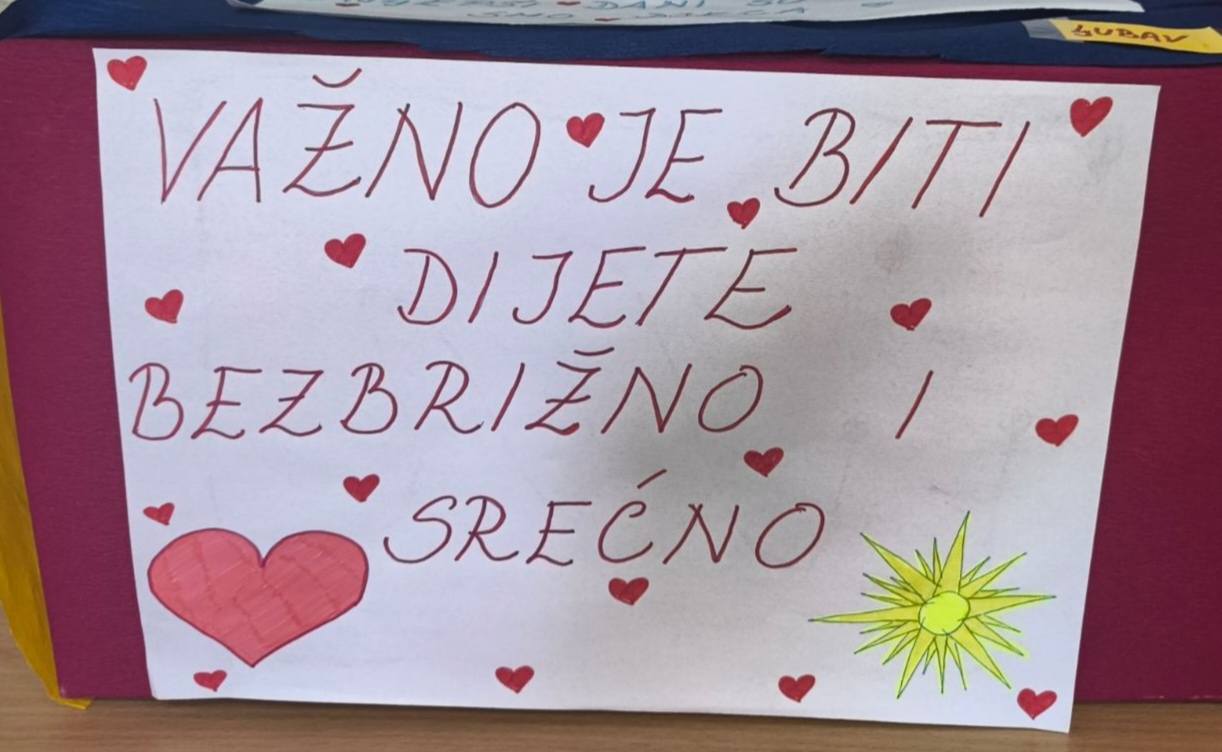 DANI SU
LJUBAV
VAŽNO JE BITI
DIJETE
BEZBRIŽNO I
SREĆNO